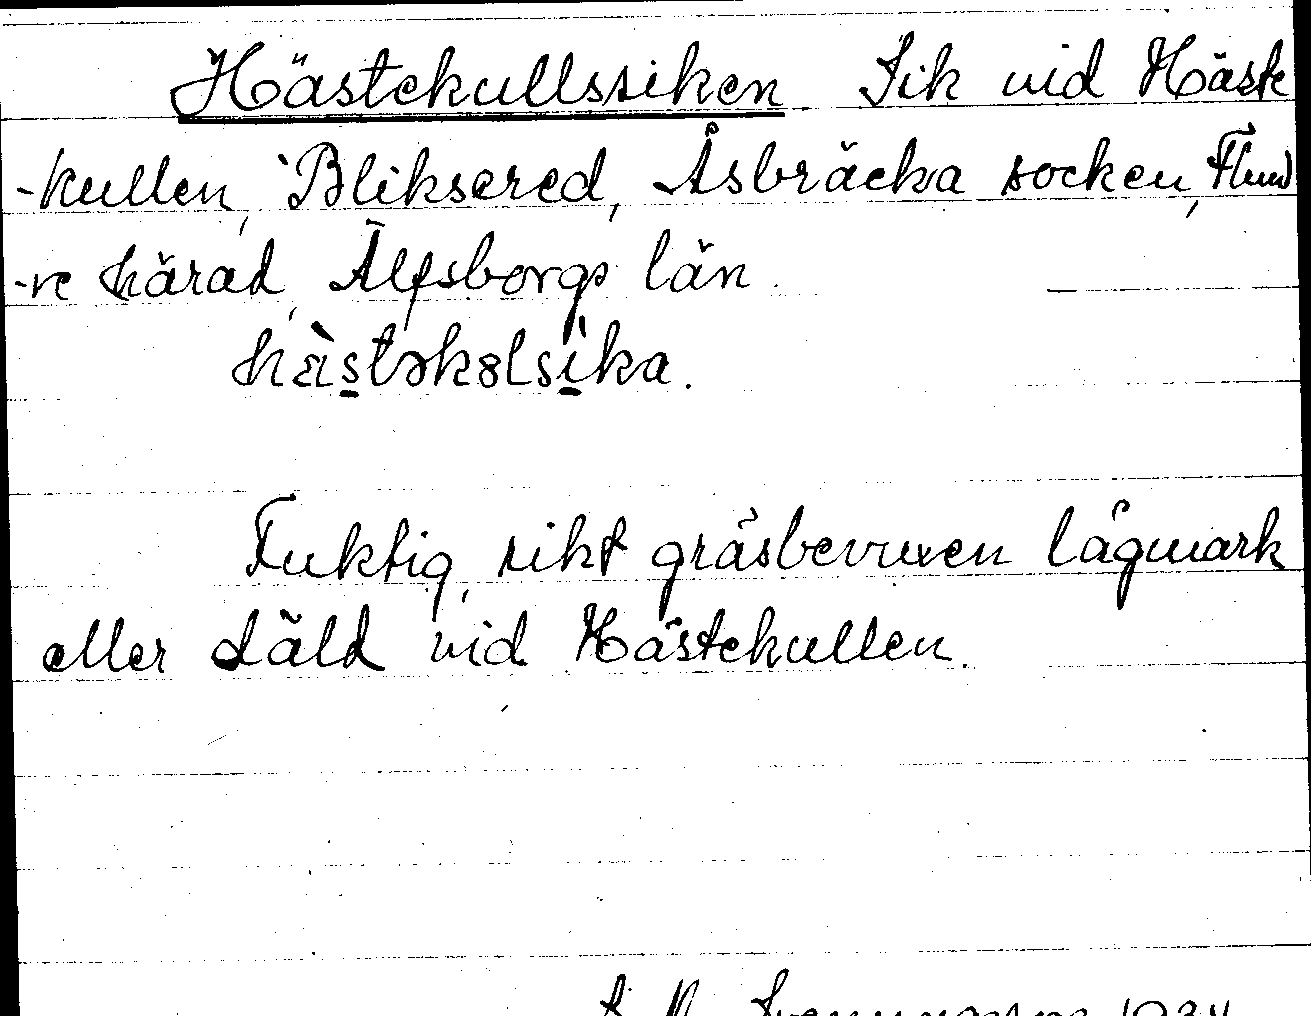 Hästekullssiken. Sik vid Häste
-kullen, Bliksered, Åsbräcka socken, Flund
-re härad, Älfsborgs län.
hàstəkɵlsìka.
Fuktig, rikt gräsbevuxen lågmark
eller däld vid Hästekullen.
1934